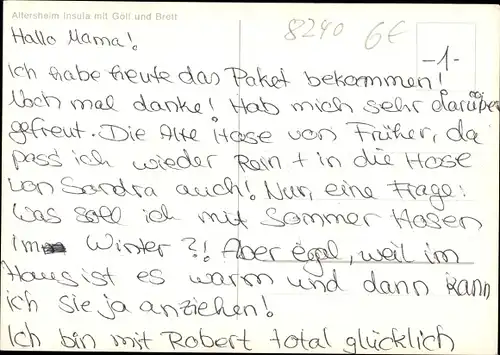 Altersheim Insula mit Gott und Brett
8240 6€
Hallo Mama!
-1-
Ich habe heute das Paket bekommen!
Noch mal danke! Hab mich sehr darüber
gefreut. Die Alte Hose von Früher, da
pass ich wieder Rein + in die Hose
von Sandra auch! Nur, eine Frage:
Was soll ich mit Sommer Hosen
im Winter?!! Aber egal, weil im
Haus ist es warm und dann kann
ich sie ja anziehen!
Ich bin mit Robert total glücklich